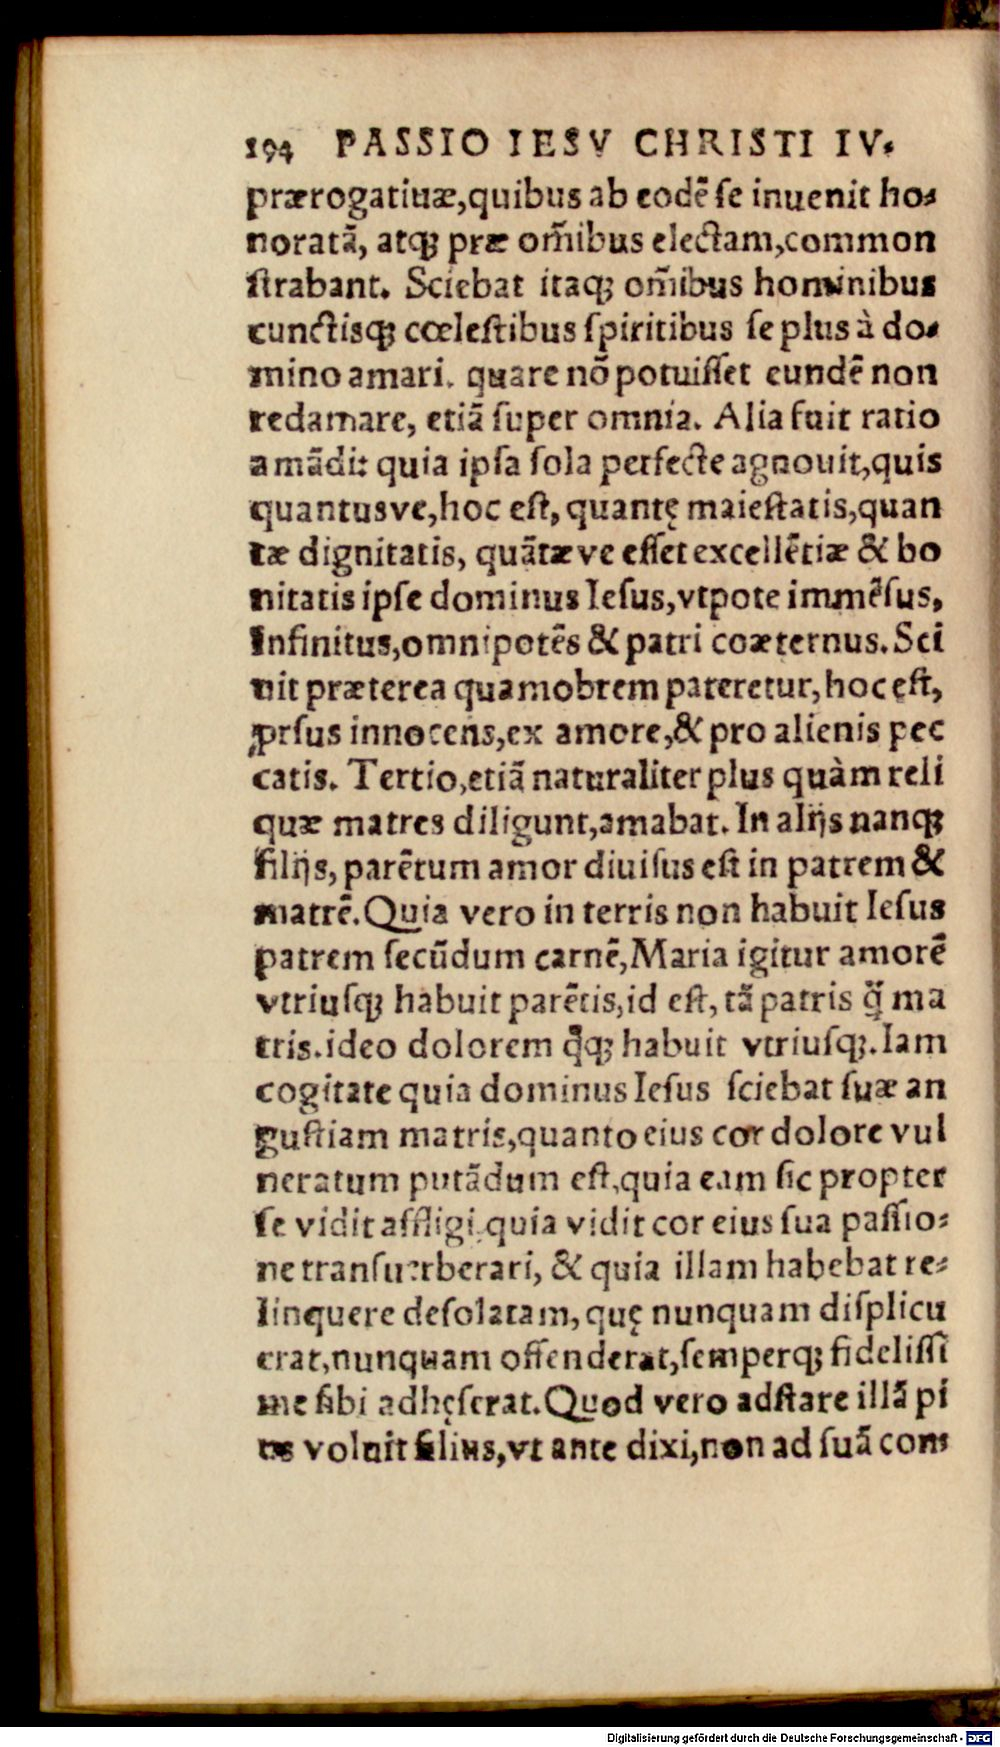 194 PASSIO IESV CHRISTI IV.
prærogatiuæ,quibus ab eodē se inuenit ho-
noratā, atqꝫ præ om̄ibus electam,common
strabant. Sciebat itaqꝫ om̄ibus hominibus
cunctisqꝫ cœlestibus spiritibus se plus à do-
mino amari. quare nō potuisset eundē non
redamare, etiā super omnia. Alia fuit ratio
amādi: quia ipsa sola perfecte agnouit,quis
quantusve,hoc est, quantę maiestatis,quan
tæ dignitatis, quātæ ve esset excellētiæ & bo
nitatis ipse dominus Iesus,vtpote immēsus,
Infinitus,omnipotēs & patri coæternus. Sci
uit præterea quamobrem pateretur,hoc est,
ꝓrsus innocens,ex amore,& pro alienis pec
catis. Tertio,etiā naturaliter plus quàm reli
quæ matres diligunt,amabat. In alijs nanqꝫ
filijs, parētum amor diuisus est in patrem &
matrē. Quia vero in terris non habuit Iesus
patrem secūdum carnē,Maria igitur amorē
vtriusqꝫ habuit parētis,id est, tā patris q̄ ma
tris.ideo dolorem qq̄ꝫ habuit vtriusqꝫ. Iam
cogitate quia dominus Iesus sciebat suæ an
gustiam matris,quanto eius cor dolore vul
neratum putādum est,quia eam sic propter
se vidit affligi,quia vidit cor eius sua passio-
ne transuerberari, & quia illam habebat re-
linquere desolatam, quę nunquam displicu
erat,nunquam offenderat,semperqꝫ fidelissi
me sibi adhęserat. Quod vero adstare illā pi
us voluit filius,vt ante dixi,non ad suā con-
Digitalisierung gefördert durch die Deutsche Forschungsgemeinschaft - DFG